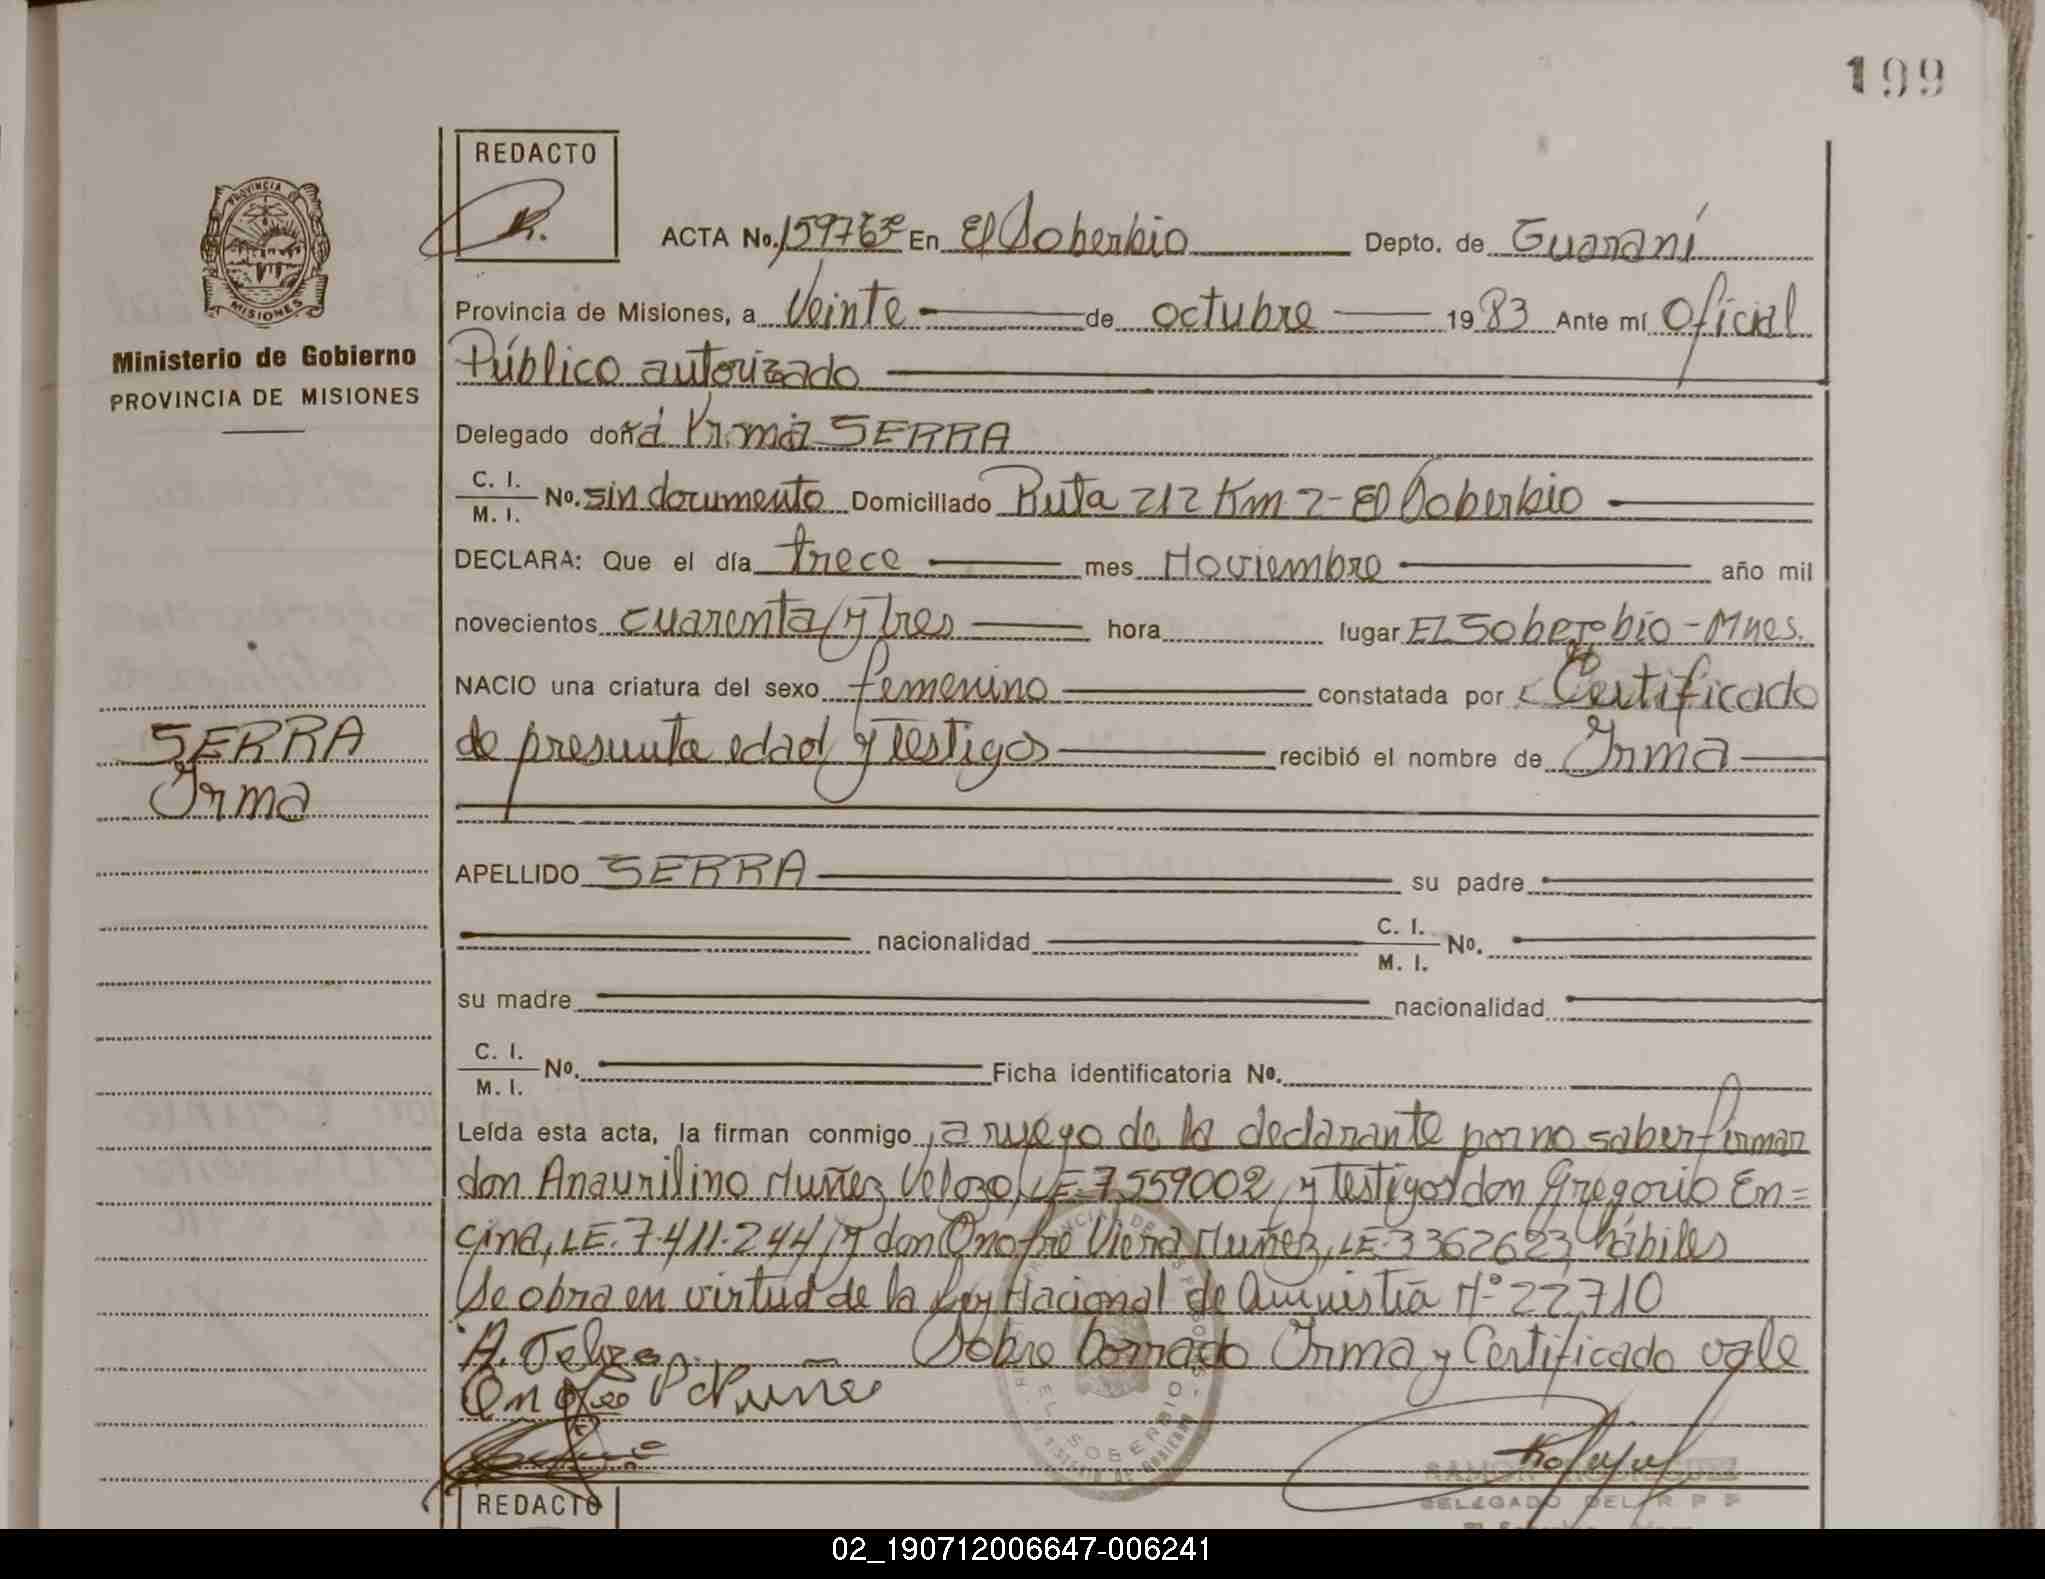 199
REDACTO
PROVINCIA
MISIONES
Ministerio de Gobierno
PROVINCIA DE MISIONES
ACTA No. En El Soberbio Depto. de Guaraní
Provincia de Misiones, a Veinte de octubre 1983 Ante mí Oficial
Público autorizado
Delegado doña Irma SERRA
C. I. / M. I. No. sin documento Domiciliado Ruta 212 Km 2-El Soberbio
DECLARA: Que el día trece mes Noviembre año mil
novecientos cuarenta y tres hora lugar El Soberbio-Mnes.
NACIO una criatura del sexo femenino constatada por Certificado
de presunta edad y testigos recibió el nombre de Irma
SERRA
Irma
APELLIDO SERRA su padre
nacionalidad C. I. / M. I. No.
su madre nacionalidad
C. I. / M. I. No. Ficha identificatoria No.
Leída esta acta, la firman conmigo, a ruego de la declarante por no saber firmar
don Anaurilino Nuñez Velozo, LE.7559002, y testigos don Gregorio En=
cina, LE.7.411.244, y don Onofre Viera Nuñez, LE.3362623, hábiles
Se obra en virtud de la Ley Nacional de Amnistía Nº 22.710
Sobre borrado Irma y Certificado vale
EL SOBERBIO
DELEGADO DEL R P P
REDACTO
02_190712006647-006241